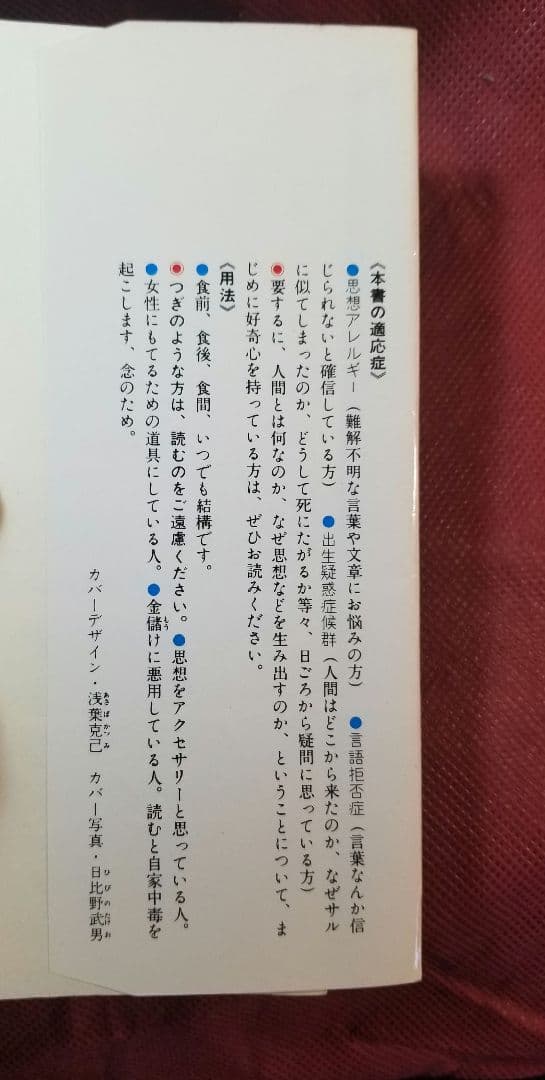 《本書の適応症》
●思想アレルギー（難解不明な言葉や文章にお悩みの方） ●言語拒否症（言葉なんか信
じられないと確信している方） ●出生疑惑症候群（人間はどこから来たのか、なぜサル
に似てしまったのか、どうして死にたがるか等々、日ごろから疑問に思っている方）
◉要するに、人間とは何なのか、なぜ思想などを生み出すのか、ということについて、ま
じめに好奇心を持っている方は、ぜひお読みください。
《用法》
●食前、食後、食間、いつでも結構です。
◉つぎのような方は、読むのをご遠慮ください。●思想をアクセサリーと思っている人。
●女性にもてるための道具にしている人。●金儲けに悪用している人。読むと自家中毒を
起こします、念のため。
カバーデザイン・浅葉克己 カバー写真・日比野武男